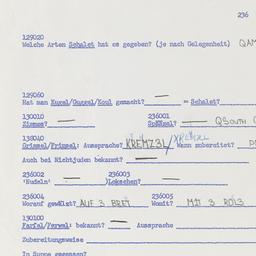 236
129020
Welche Arten Schalet hat es gegeben? (je nach Gelegenheit) QAM
129060
Hat man Kugel/Guggel/Kool gemacht? = Schalet?
130010 236001
QSOUTH
138040
Grimsel/Frimsel: Aussprache? KREMZ3L/ Wann zubereitet?
Auch bei Nichtjuden bekannt?
236002 236003
'Nudeln' )Lokschen?
236004 236005
Worauf gewälzt? AUF 3 BRET Womit? MIT 3 ROL3
130100
Farfel/Ferwel: bekannt? Aussprache
Zubereitungsweise
In Suppe gegessen?